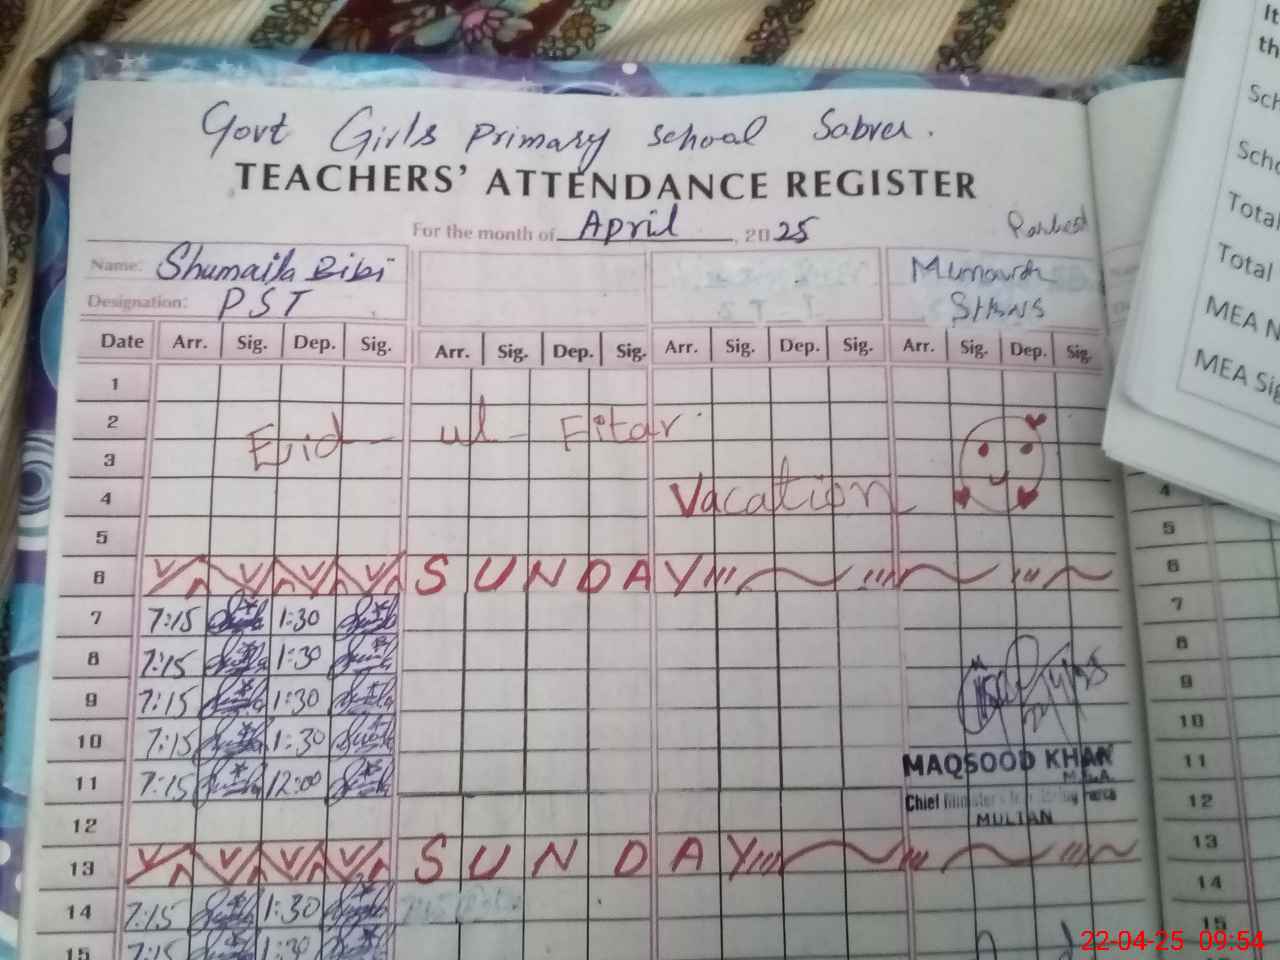 Govt Girls Primary school Sabra.
TEACHERS' ATTENDANCE REGISTER
For the month of April, 2025
Name: Shumaila Bibi
Designation: PST
Date Arr. Sig. Dep. Sig. Arr. Sig. Dep. Sig. Arr. Sig. Dep. Sig. Arr. Sig. Dep. Sig.
1
2 Eid-ul-Fitar
3
4 Vacation
5
6 SUNDAY
7 7:15 1:30
8 7:15 1:30
9 7:15 1:30
10 7:15 1:30
11 7:15 12:00
MAQSOOD KHAN
M.E.A.
MULTAN
12
13 SUNDAY
14 7:15 1:30
15 7:15 1:30
It
th
Sch
Scho
Total
Total
MEA N
MEA Sig
4
5
6
7
8
9
10
11
12
13
14
15
22-04-25 09:54